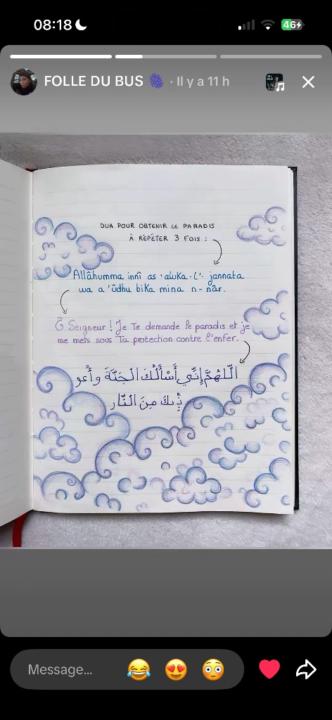 08:18
46
FOLLE DU BUS · Il y a 11 h
DUA POUR OBTENIR LE PARADIS
À RÉPÉTER 3 FOIS :
Allâhumma innî as 'aluka-l'- jannata
wa a 'ûdhu bika mina n-nâr.
Ô Seigneur ! Je Te demande le paradis et je
me mets sous Ta protection contre l'enfer.
اللَّهُمَّ إِنِّي أَسْأَلُكَ الْجَنَّةَ وأَعُو
ذُبِكَ مِنَ النَّارِ
Message...